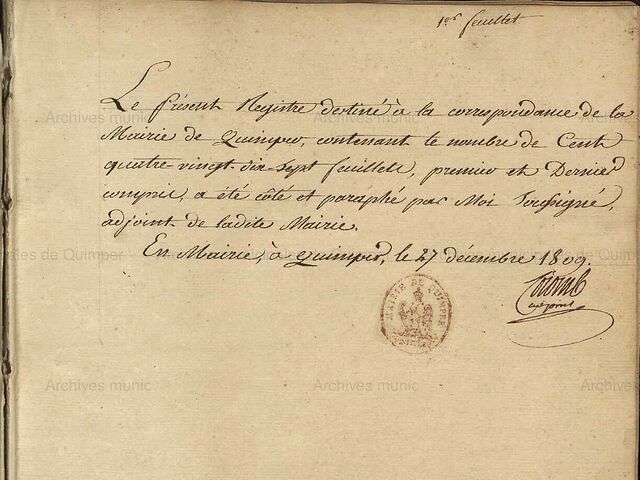 1er feuillet
Le présent Registre destiné à la correspondance de la
Mairie de Quimper, contenant le nombre de Cent
quatre vingt dix-sept feuillets, premier et Dernier
compris, a été côté et paraphé par Moi Soussigné,
adjoint de ladite Mairie.
En Mairie, à Quimper, le 27 décembre 1809.
Colomb
adjoint
MAIRIE DE QUIMPER
FINISTERE
Archives munic
Archives munic
les de Quimper
Archives municipales de Quimper
Archives munic
Archives munic